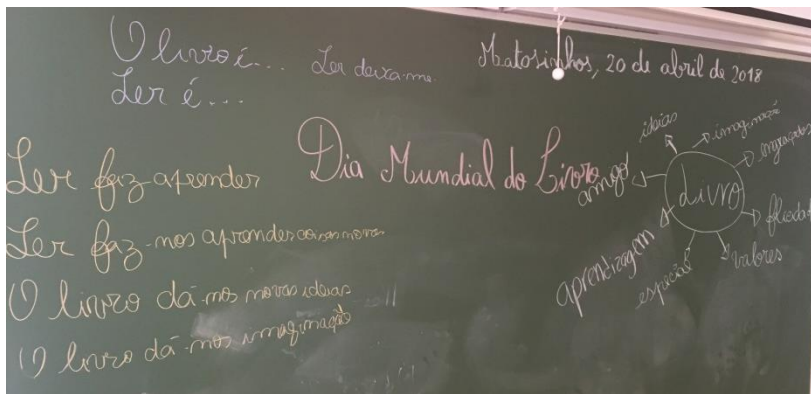 O livro é... Ler deixa-me
Ler é...
Matosinhos, 20 de abril de 2018
Dia Mundial do Livro
Ler faz aprender
Ler faz-nos aprender coisas novas
O livro dá-nos novas ideias
O livro dá-nos imaginação
Livro
ideias
imaginação
engraçados
valores
especial
aprendizagem
amigo